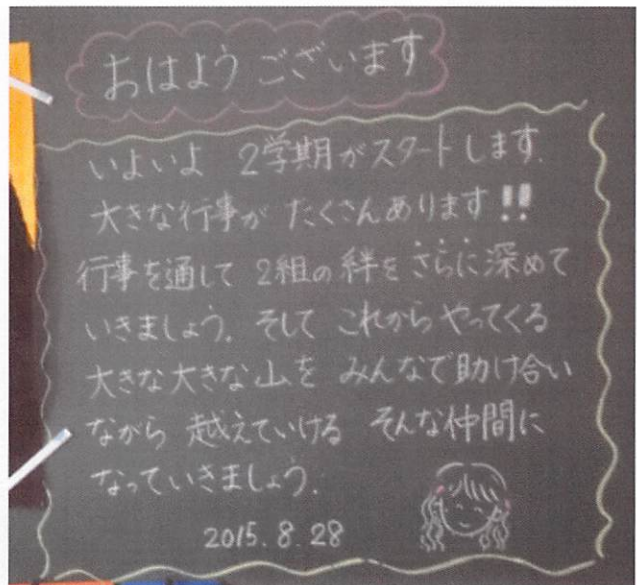 おはようございます
いよいよ 2学期がスタートします.
大きな行事が たくさんあります!!
行事を通して 2組の絆を さらに深めて
いきましょう. そして これからやってくる
大きな大きな山を みんなで助け合い
ながら 越えていける そんな仲間に
なっていきましょう.
2015.8.28